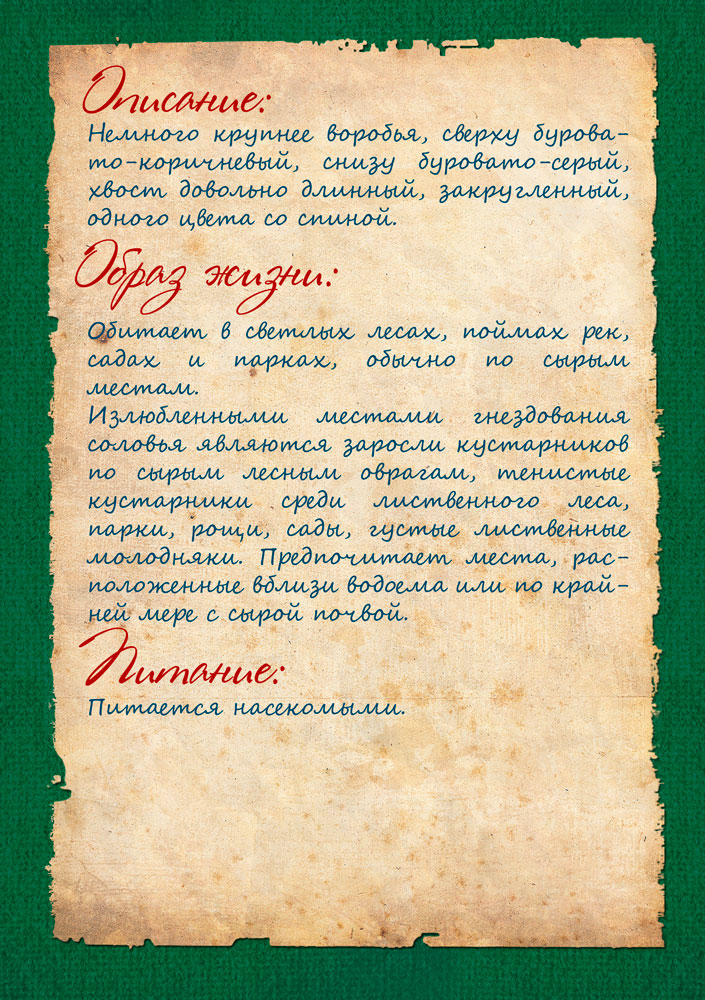 Описание:
Немного крупнее воробья, сверху бурова-
то-коричневый, снизу буровато-серый,
хвост довольно длинный, закругленный,
одного цвета со спиной.
Образ жизни:
Обитает в светлых лесах, поймах рек,
садах и парках, обычно по сырым
местам.
Излюбленными местами гнездования
соловья являются заросли кустарников
по сырым лесным оврагам, тенистые
кустарники среди лиственного леса,
парки, рощи, сады, густые лиственные
молодняки. Предпочитает места, рас-
положенные вблизи водоема или по край-
ней мере с сырой почвой.
Питание:
Питается насекомыми.